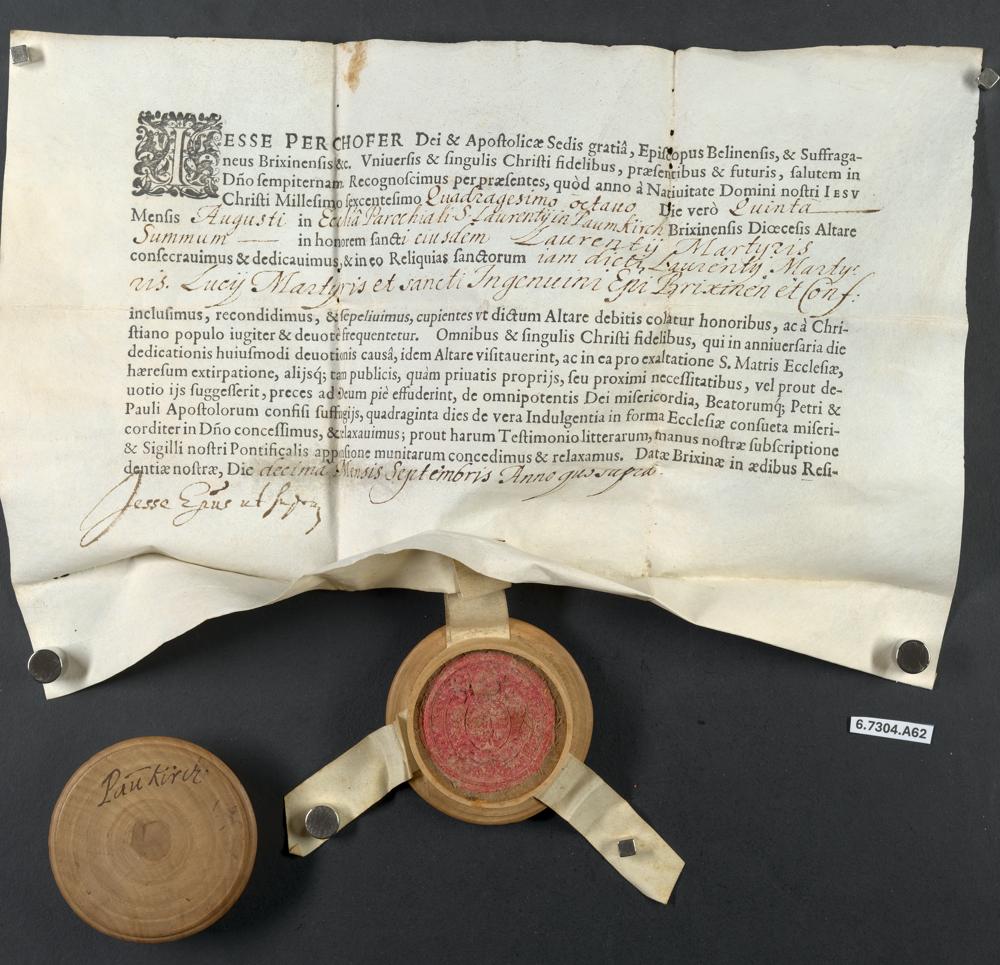 IESSE PERCHOFER Dei & Apostolicæ Sedis gratiâ, Episcopus Belinensis, & Suffraga-
neus Brixinensis &c. Vniuersis & singulis Christi fidelibus, præsentibus & futuris, salutem in
Dño sempiternam. Recognoscimus per præsentes, quòd anno à Natiuitate Domini nostri IESV
Christi Millesimo sexcentesimo Quadragesimo octauo Die verò Quinta
Mensis Augusti in Ecclia Parochiali S. Laurentij in Paumkirch Brixinensis Diœcesis Altare
Summum in honorem sancti eiusdem Laurentij Martyris
consecrauimus & dedicauimus, & in eo Reliquias sanctorum iam dicti Laurentij Marty:
ris. Lucij Martyris et sancti Ingenuini Epi Brixinen et Conf:
inclusimus, recondidimus, & sepeliuimus, cupientes vt dictum Altare debitis colatur honoribus, ac à Chri-
stiano populo iugiter & deuotè frequentetur. Omnibus & singulis Christi fidelibus, qui in anniuersaria die
dedicationis huiusmodi deuotionis causâ, idem Altare visitauerint, ac in ea pro exaltatione S. Matris Ecclesiæ,
hæresum extirpatione, alijsq; tam publicis, quàm priuatis proprijs, seu proximi necessitatibus, vel prout de-
uotio ijs suggesserit, preces ad Deum piè effuderint, de omnipotentis Dei misericordia, Beatorumq; Petri &
Pauli Apostolorum confisi suffragijs, quadraginta dies de vera Indulgentia in forma Ecclesiæ consueta miseri-
corditer in Dño concessimus, & relaxauimus; prout harum Testimonio litterarum, manus nostræ subscriptione
& Sigilli nostri Pontificalis appensione munitarum concedimus & relaxamus. Datæ Brixinæ in ædibus Resi-
dentiæ nostræ, Die decima Mensis Septembris Anno quo supra
Jesse Epus ut supra
6.7304.A62
Paūkirch: